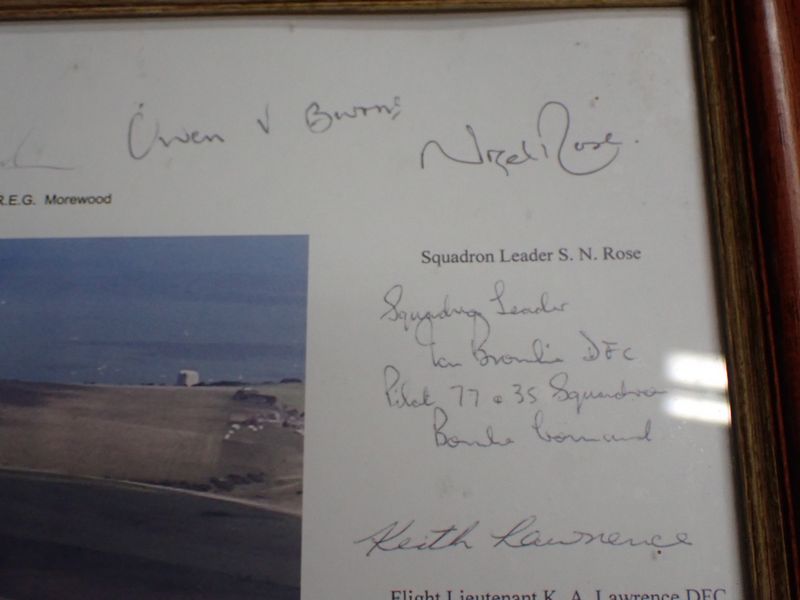 Owen V Burns
Nigel Rose.
R.E.G. Morewood
Squadron Leader S. N. Rose
Squadron Leader
Ian DFC
Pilot 77 & 35 Squadron
Command
Keith Lawrence
Flight Lieutenant K. A. Lawrence DFC